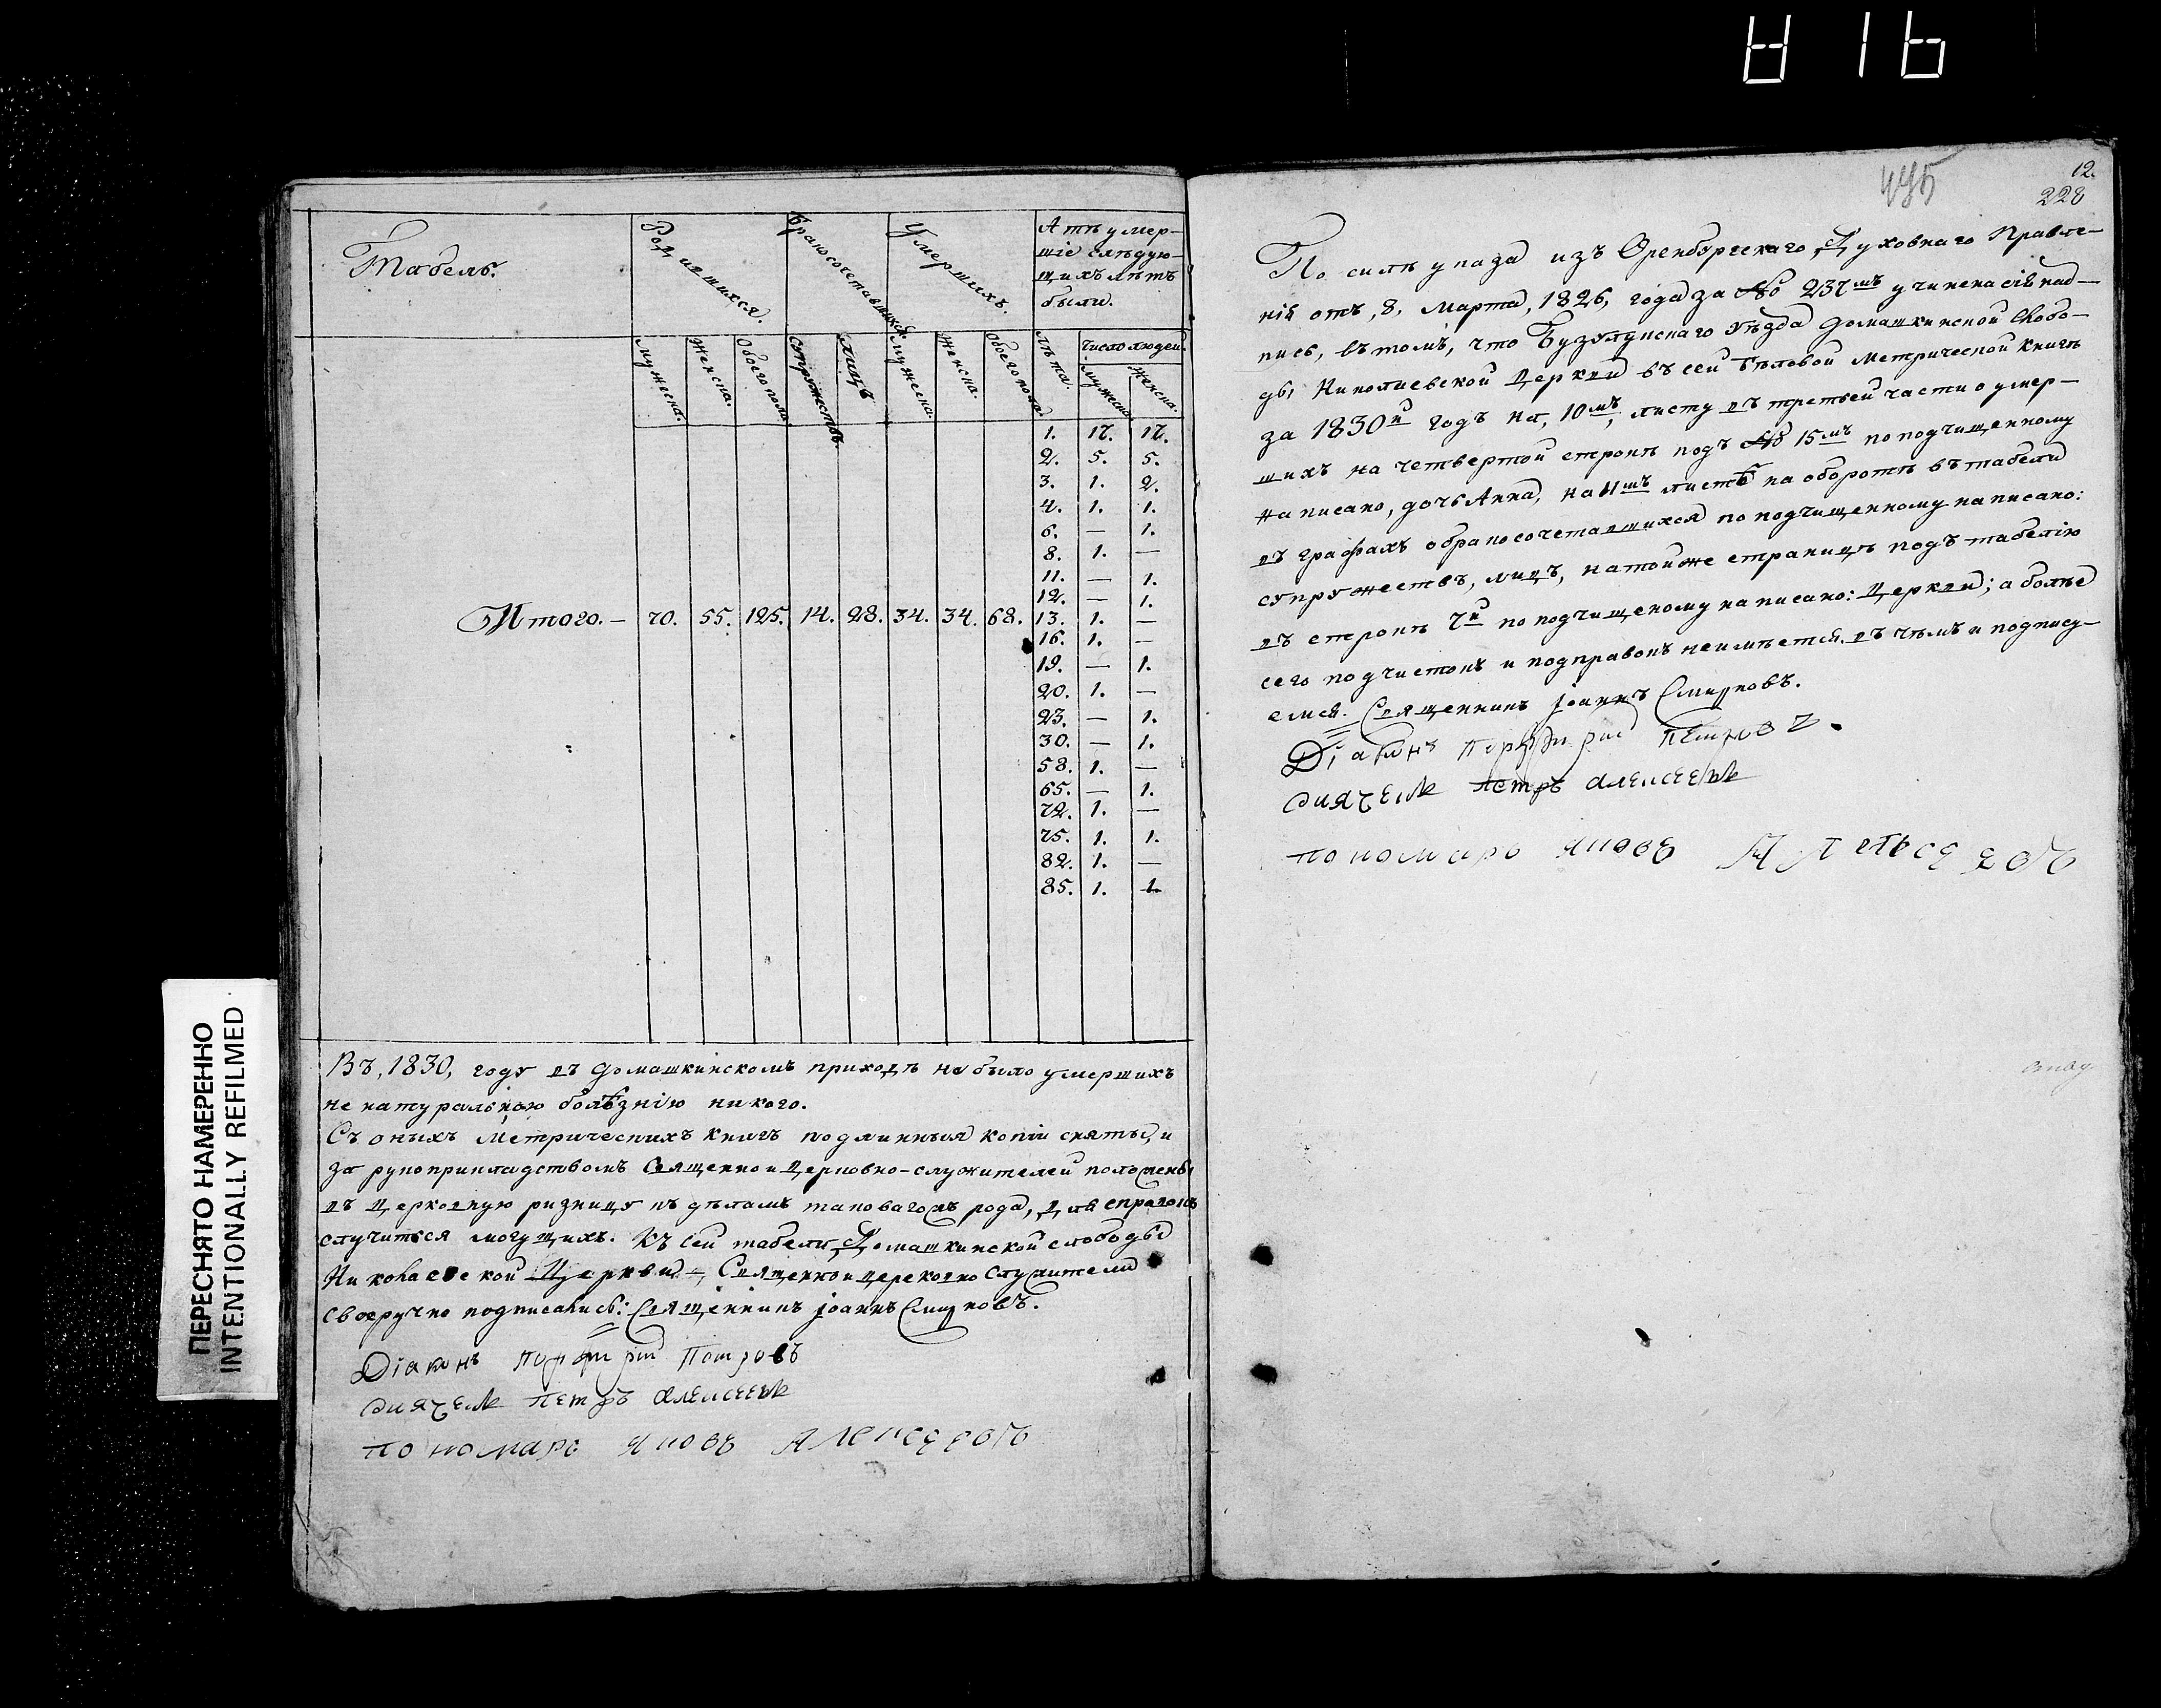 816
ПЕРЕСНЯТО НАМЕРЕННО
INTENTIONALLY REFILMED
Табель.
Родившихся.
Бракосочетавшихся
Умершихъ.
А тѣ умер-
шіе слѣдую-
щихъ лѣтъ
были.
мужеска. женска. Обоего пола. Супружествъ лицъ мужеска. женска. Обоего пола. лѣта. число людей.
мужеска женска.
1. 17. 17.
2. 5. 5.
3. 1. 2.
4. 1. 1.
6. — 1.
8. 1. —
11. — 1.
12. — 1.
Итого. — 70. 55. 125. 14. 28. 34. 34. 68. 13. 1. —
16. 1. —
19. — 1.
20. 1. —
23. — 1.
30. — 1.
58. 1. —
65. — 1.
72. 1. —
75. 1. 1.
82. 1. —
85. 1. 1.
Въ, 1830, году въ Домашкинскомъ приходѣ не было умершихъ
не натуральною болѣзнію никого.
Съ оныхъ Метрическихъ книгъ подлинныя копіи сняты, и
за рукоприкладствомъ Священно и Церковно-служителей положены
въ Церковную ризницу къ дѣламъ таковагожъ рода, для справокъ
случиться могущихъ. Къ сей табели, Домашкинской слободы
Николаевской Церкви, Священно и церковно Служители
своеручно подписались: Священникъ Іоаннъ Смирновъ.
Діаконъ Порфирій Петровъ
дьячекъ Петръ Алексеевъ
пономарь Яковъ Алексеевъ
495
12.
228
По силѣ указа изъ Оренбургскаго Духовнаго Правле-
нія отъ, 8, Марта, 1826, года за № 237мъ учинена сія над-
пись, въ томъ, что Бузулукскаго уѣзда Домашкинской слобо-
ды, Николаевской Церкви въ сей бѣловой Метрической книгѣ
за 1830й годъ на, 10мъ, листу въ третьей части о умер-
шихъ на четвертой строкѣ подъ № 15мъ по подчищенному
написано, дочь Анна, на 11мъ листѣ на оборотѣ въ табели
въ графахъ о бракосочетавшихся по подчищенному написано:
супружествъ, лицъ, на той же страницѣ подъ табелію
въ строкѣ 7й по подчищеному написано: Церкви; а болѣе
сего подчистокъ и подправокъ неимѣется. въ чемъ и подпису-
емся. Священникъ Іоаннъ Смирновъ.
Діаконъ Порфирій Петровъ.
дьячекъ Петръ Алексеевъ
пономарь Яковъ Алексеевъ